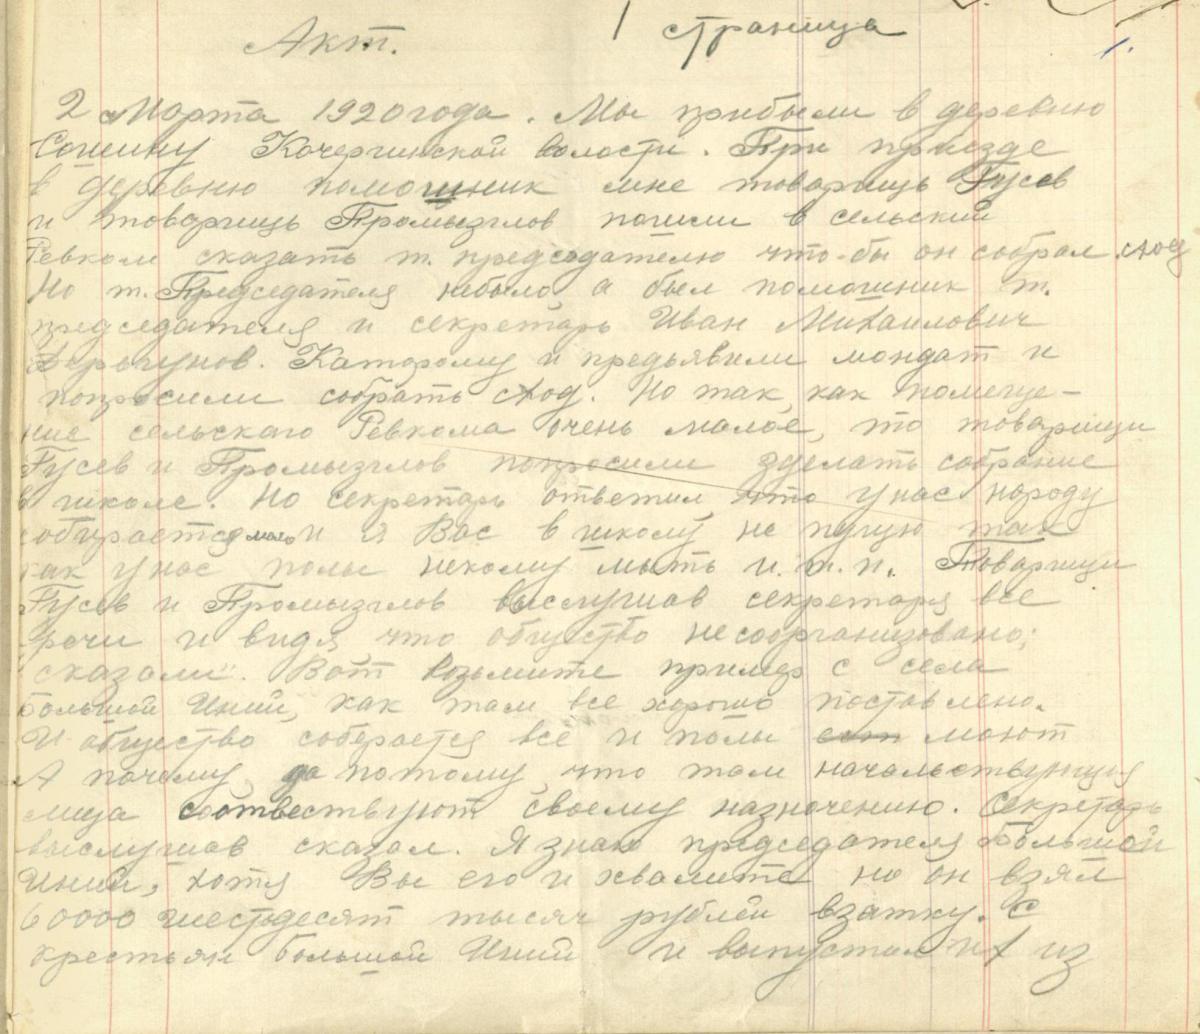 1 страница
Акт.
1.
2 Марта 1920 года. Мы прибыли в деревню
Кочергинской волости. При приезде
в деревню помошник мне товарищь Гусев
и товарищь Промызглов пошли в сельский
Ревком сказать т. председателю что-бы он собрал сход
Но т. Председателя небыло, а был помошник т.
председателя и секретарь Иван Михаилович
Каторому и предъявили мондат и
попросили собрать сход. Но так, как помеще-
ние сельскаго Ревкома очень малое, то товарищи
Гусев и Промызглов попросили зделать собрание
в школе. Но секретарь ответил, что у нас народу
собирается мало и я Вас в школу не пущю так
как у нас полы некому мыть и.т.п. Товарищи
Гусев и Промызглов выслушав секретаря все
речи и видя что общество несоорганизовано;
сказали". Вот возьмите пример с села
Большой Иний, как там все хорошо поставлено.
И общество соберается все и полы моют
А почему, да потому, что там начальствующия
лица соотвествуют своему назночению. Секретарь
выслушав сказал. Я знаю председателя Большой
Иний, хотя Вы его и хвалите но он взял
60000 шестьдесят тысяч рублей взатку. с
крестьян большой Иний и выпустил их из